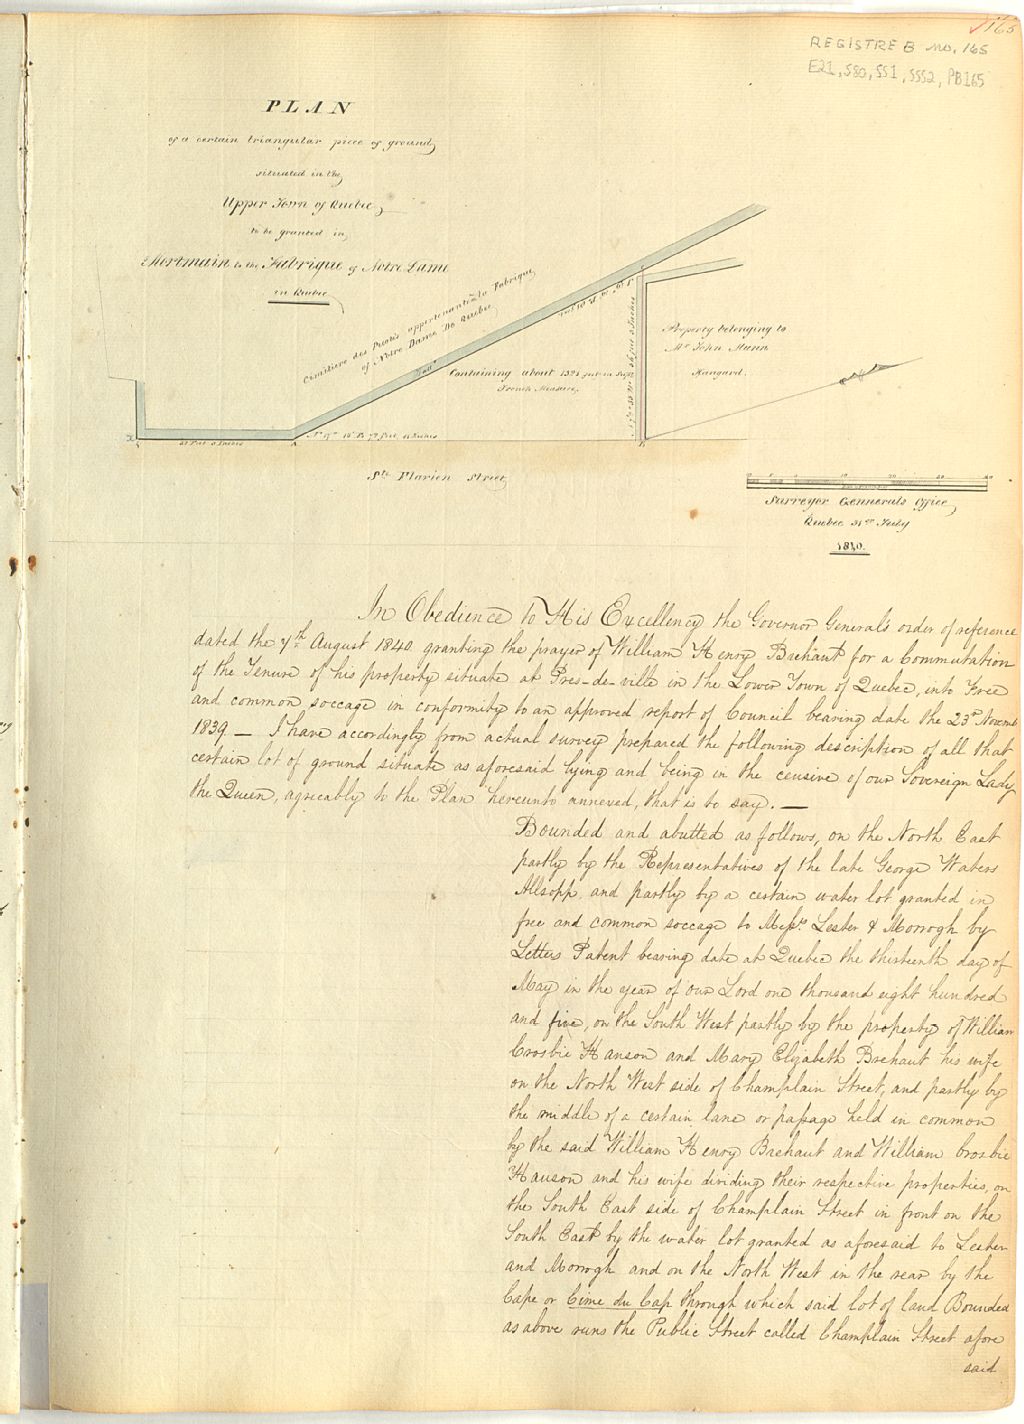 165
REGISTRE B No. 165
E21, S80, SS1, SSS2, PB165
PLAN
of a certain triangular piece of ground,
situated in the,
Upper Town of Quebec,
to be granted in,
Mortmain to the Fabrique of Notre Dame
in Quebec
Cimetiere des Picotés appertenant a la Fabrique
of Notre Dame De Quebec
Wall
Containing about 1321 feet in Supr.
French Measure,
Property belonging to
Mr. John Munn
Hangard.
Ste. Flavien Street,
Surveyor Gennerals Office,
Quebec 31st July
1840.
In Obedience to His Excellency the Governor General's order of reference
dated the 7th August 1840 granting the prayer of William Henry Brehaut for a Commutation
of the Tenure of his property situate at Pres-de-ville in the Lower Town of Quebec, into Free
and common soccage in conformity to an approved report of Council bearing date the 23rd Novemb
1839 — I have accordingly from actual survey prepared the following description of all that
certain lot of ground situate as aforesaid lying and being in the censive of our Sovereign Lady
the Queen, agreeably to the Plan hereunto annexed, that is to say. —
Bounded and abutted as follows, on the North East
partly by the Representatives of the late George Waters
Allsopp, and partly by a certain water lot granted in
free and common soccage to Messrs. Lester & Morrogh by
Letters Patent bearing date at Quebec the thirteenth day of
May in the year of our Lord one thousand eight hundred
and five, on the South West partly by the property of William
Crosbie Hanson and Mary Elizabeth Brehaut his wife
on the North West side of Champlain Street, and partly by
the middle of a certain lane or passage held in common
by the said William Henry Brehaut and William Crosbie
Hanson and his wife dividing their respective properties, on
the South East side of Champlain Street in front on the
South East by the water lot granted as aforesaid to Lester
and Morrogh and on the North West in the rear by the
Cape or Cime du Cap through which said lot of land Bounded
as above runs the Public Street called Champlain Street afore
said